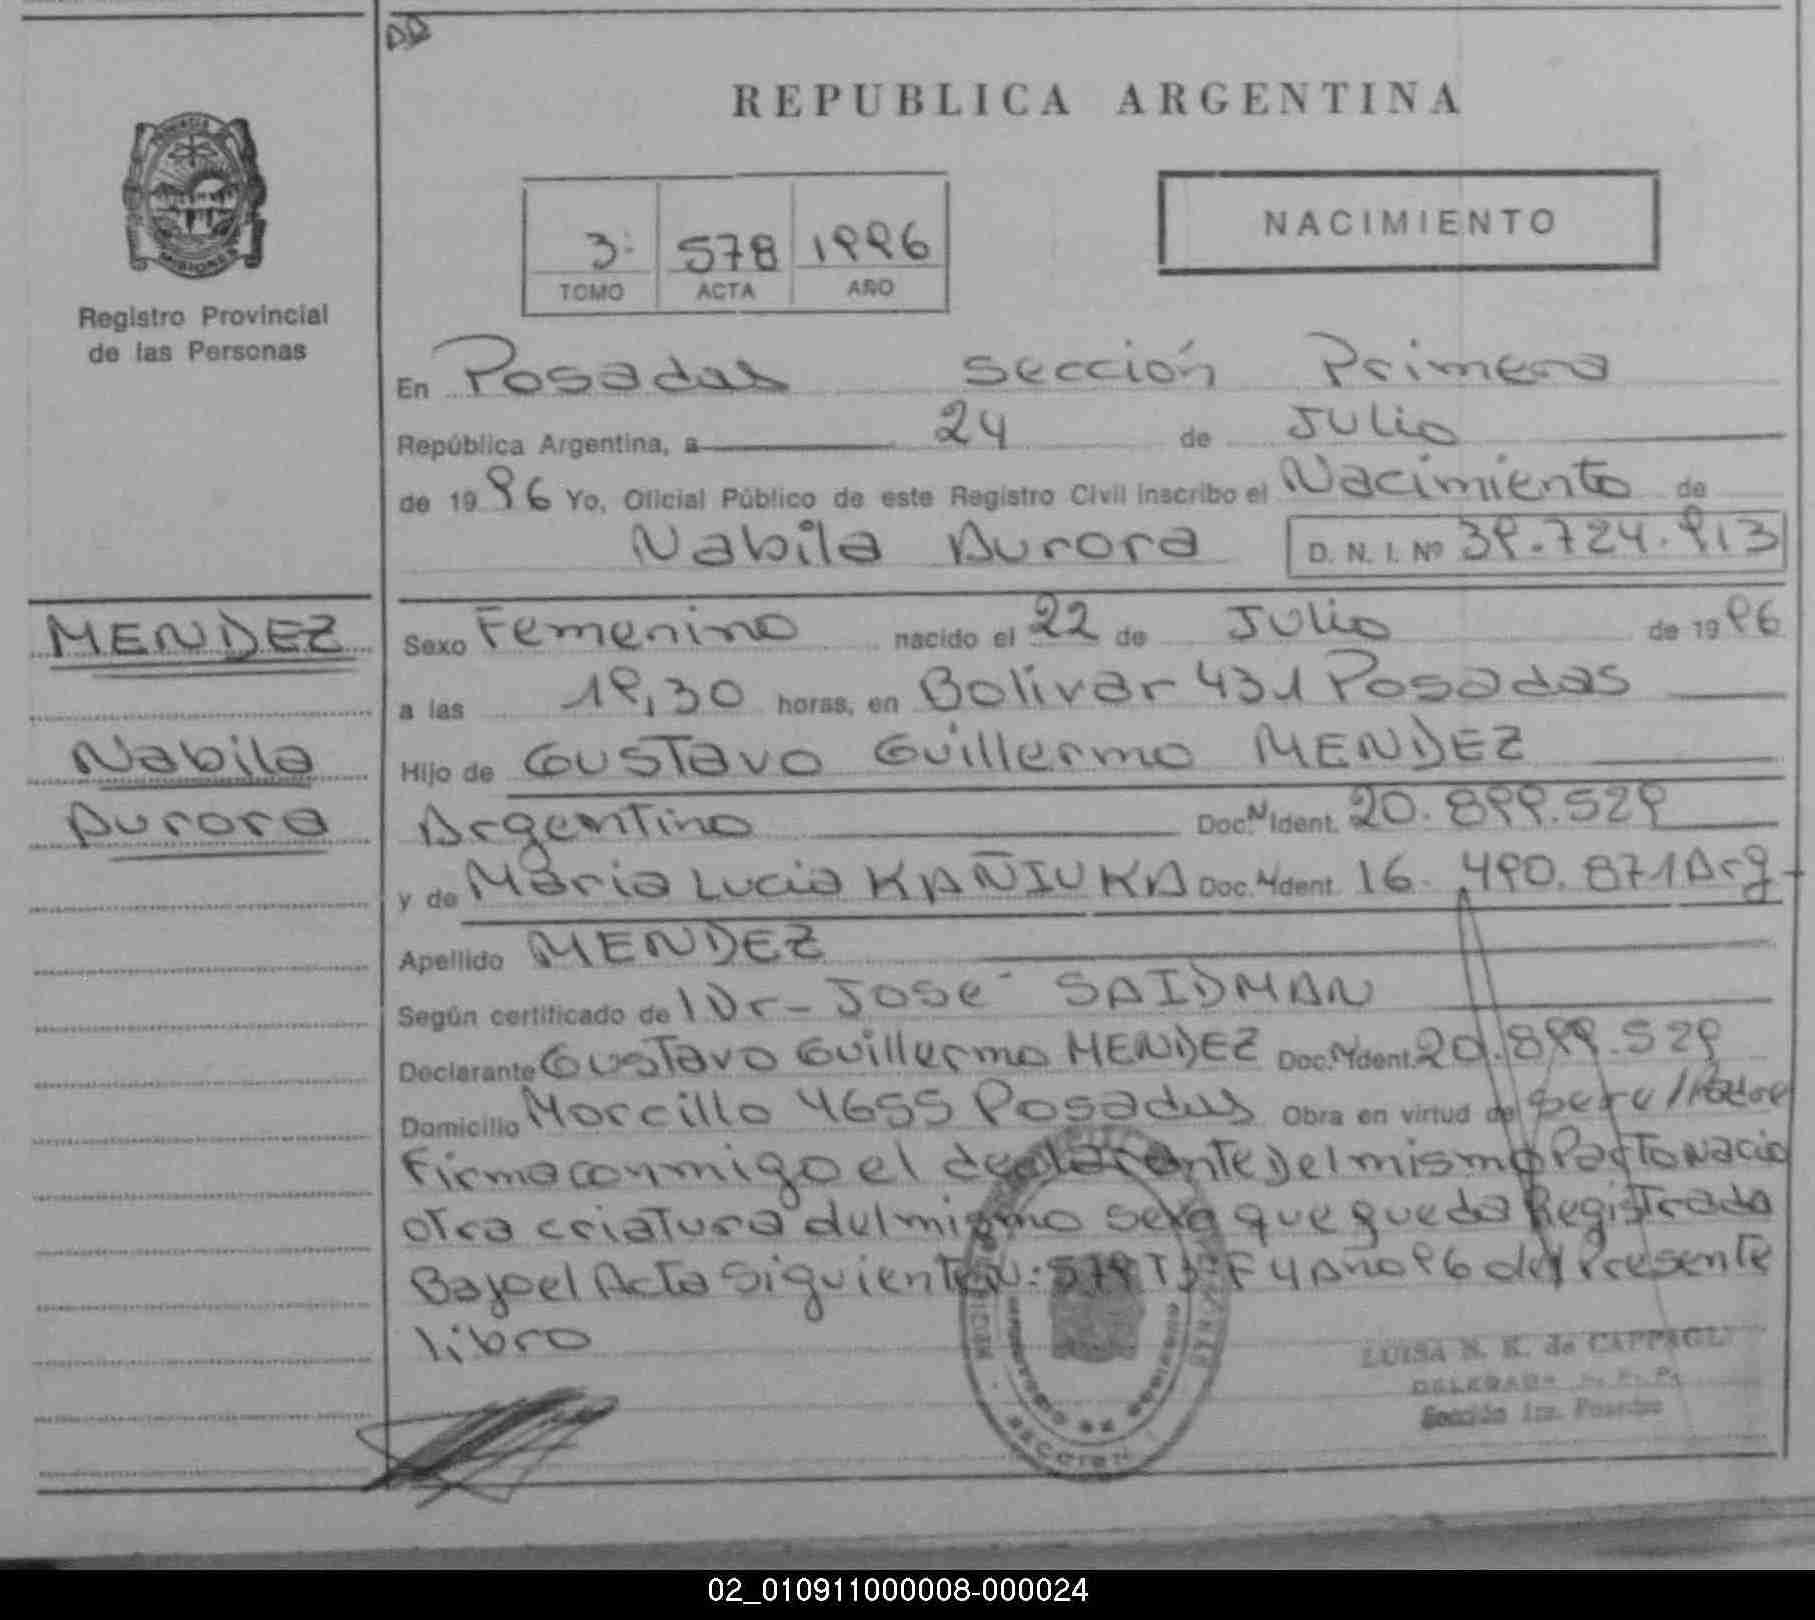 REPUBLICA ARGENTINA
NACIMIENTO
3: 578 1996
TOMO ACTA AÑO
MISIONES
Registro Provincial
de las Personas
En Posadas sección Primera
República Argentina, a 24 de Julio
de 1996 Yo, Oficial Público de este Registro Civil inscribo el Nacimiento de
Nabila Aurora D. N. I. Nº 39.724.913
MENDEZ
Nabila
Aurora
Sexo Femenino nacido el 22 de Julio de 1996
a las 19,30 horas, en Bolivar 431 Posadas
Hijo de Gustavo Guillermo MENDEZ
Argentino Doc. Ident. 20.899.529
y de Maria Lucia KAÑIUKA Doc. Ident. 16.490.871 Arg
Apellido MENDEZ
Según certificado de Dr- Jose SAIDMAN
Declarante Gustavo Guillermo MENDEZ Doc. Ident. 20.899.529
Domicilio Morcillo 4655 Posadas Obra en virtud de Padre
Firma conmigo el declarante Del mismo Parto Nacio
otra criatura del mismo sexo que queda Registrada
Bajo el Acta Siguiente N: 579 T3: F4 Año 96 del Presente
libro
LUISA N. K. de CAPPAGLI
DELEGADA R. P. P.
Sección 1ra. Posadas
SECCION
02_010911000008-000024